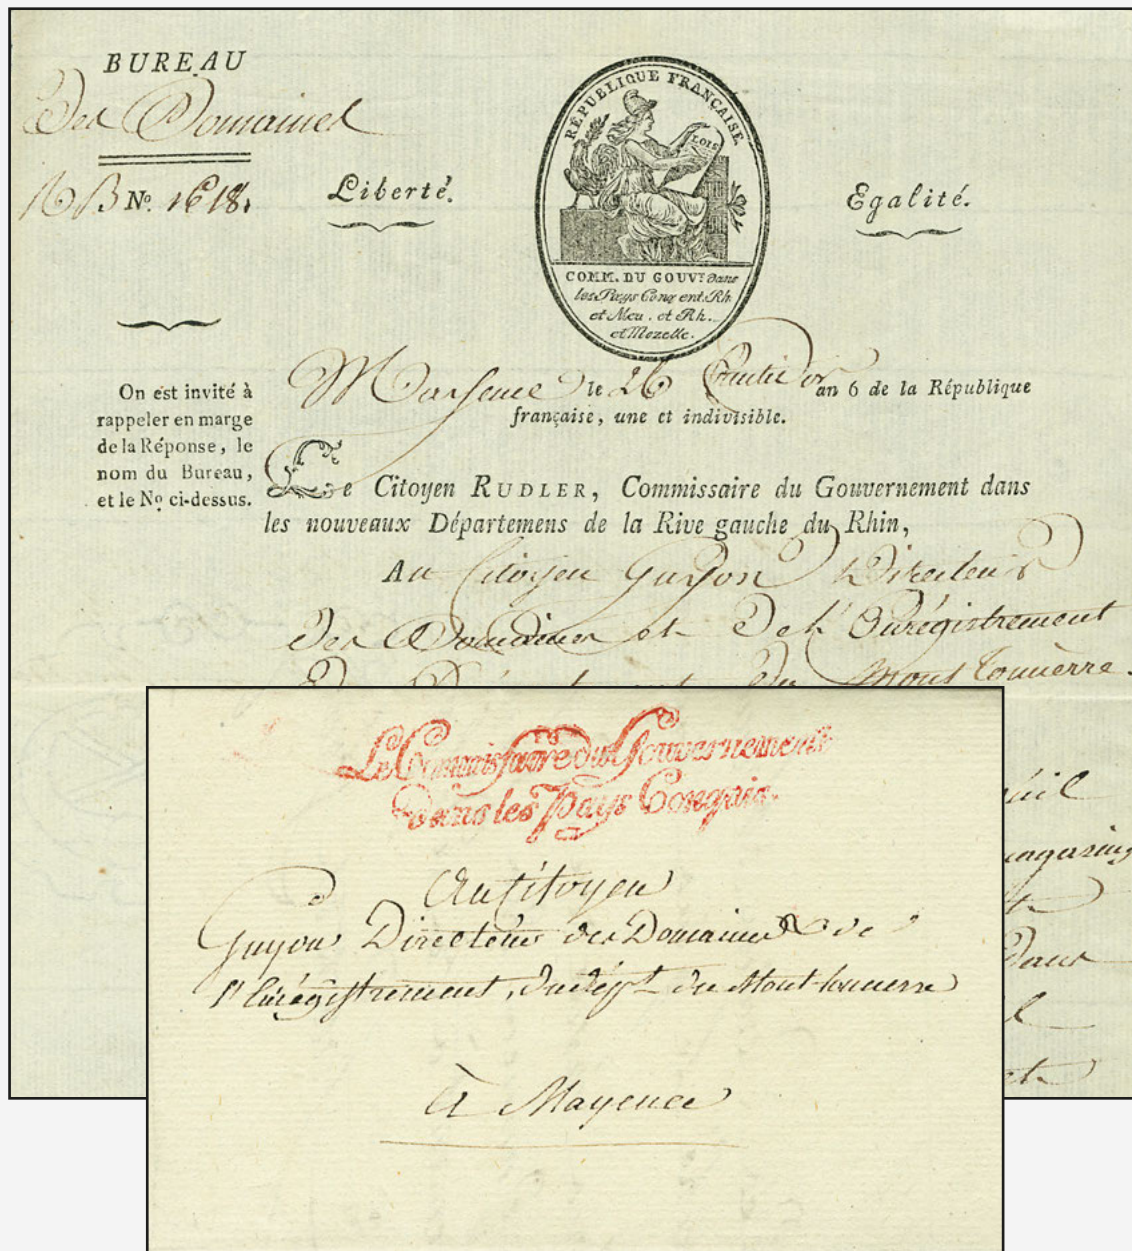 BUREAU
Des Domaines
N.º 1618.
Liberté.
Egalité.
RÉPUBLIQUE FRANÇAISE
LOIS
COMM. DU GOUV.ᵗ dans
les Pays Conq. ent. Rh.
et Meu. et Rh.
et Mozelle.
On est invité à
rappeler en marge
de la Réponse, le
nom du Bureau,
et le Nº ci-dessus.
Mayence le 26 fructidor an 6 de la République
française, une et indivisible.
Le Citoyen RUDLER, Commissaire du Gouvernement dans
les nouveaux Départemens de la Rive gauche du Rhin,
Au Citoyen Guyon Directeur
des Domaines et de l'Enrégistrement
du Mont Tonnerre.
magasins
dans
Le Commissaire du Gouvernement
dans les Pays Conquis.
Au Citoyen
Guyon Directeur des Domaines & de
l'Enrégistrement, du dépt. du Mont-tonnerre
à Mayence